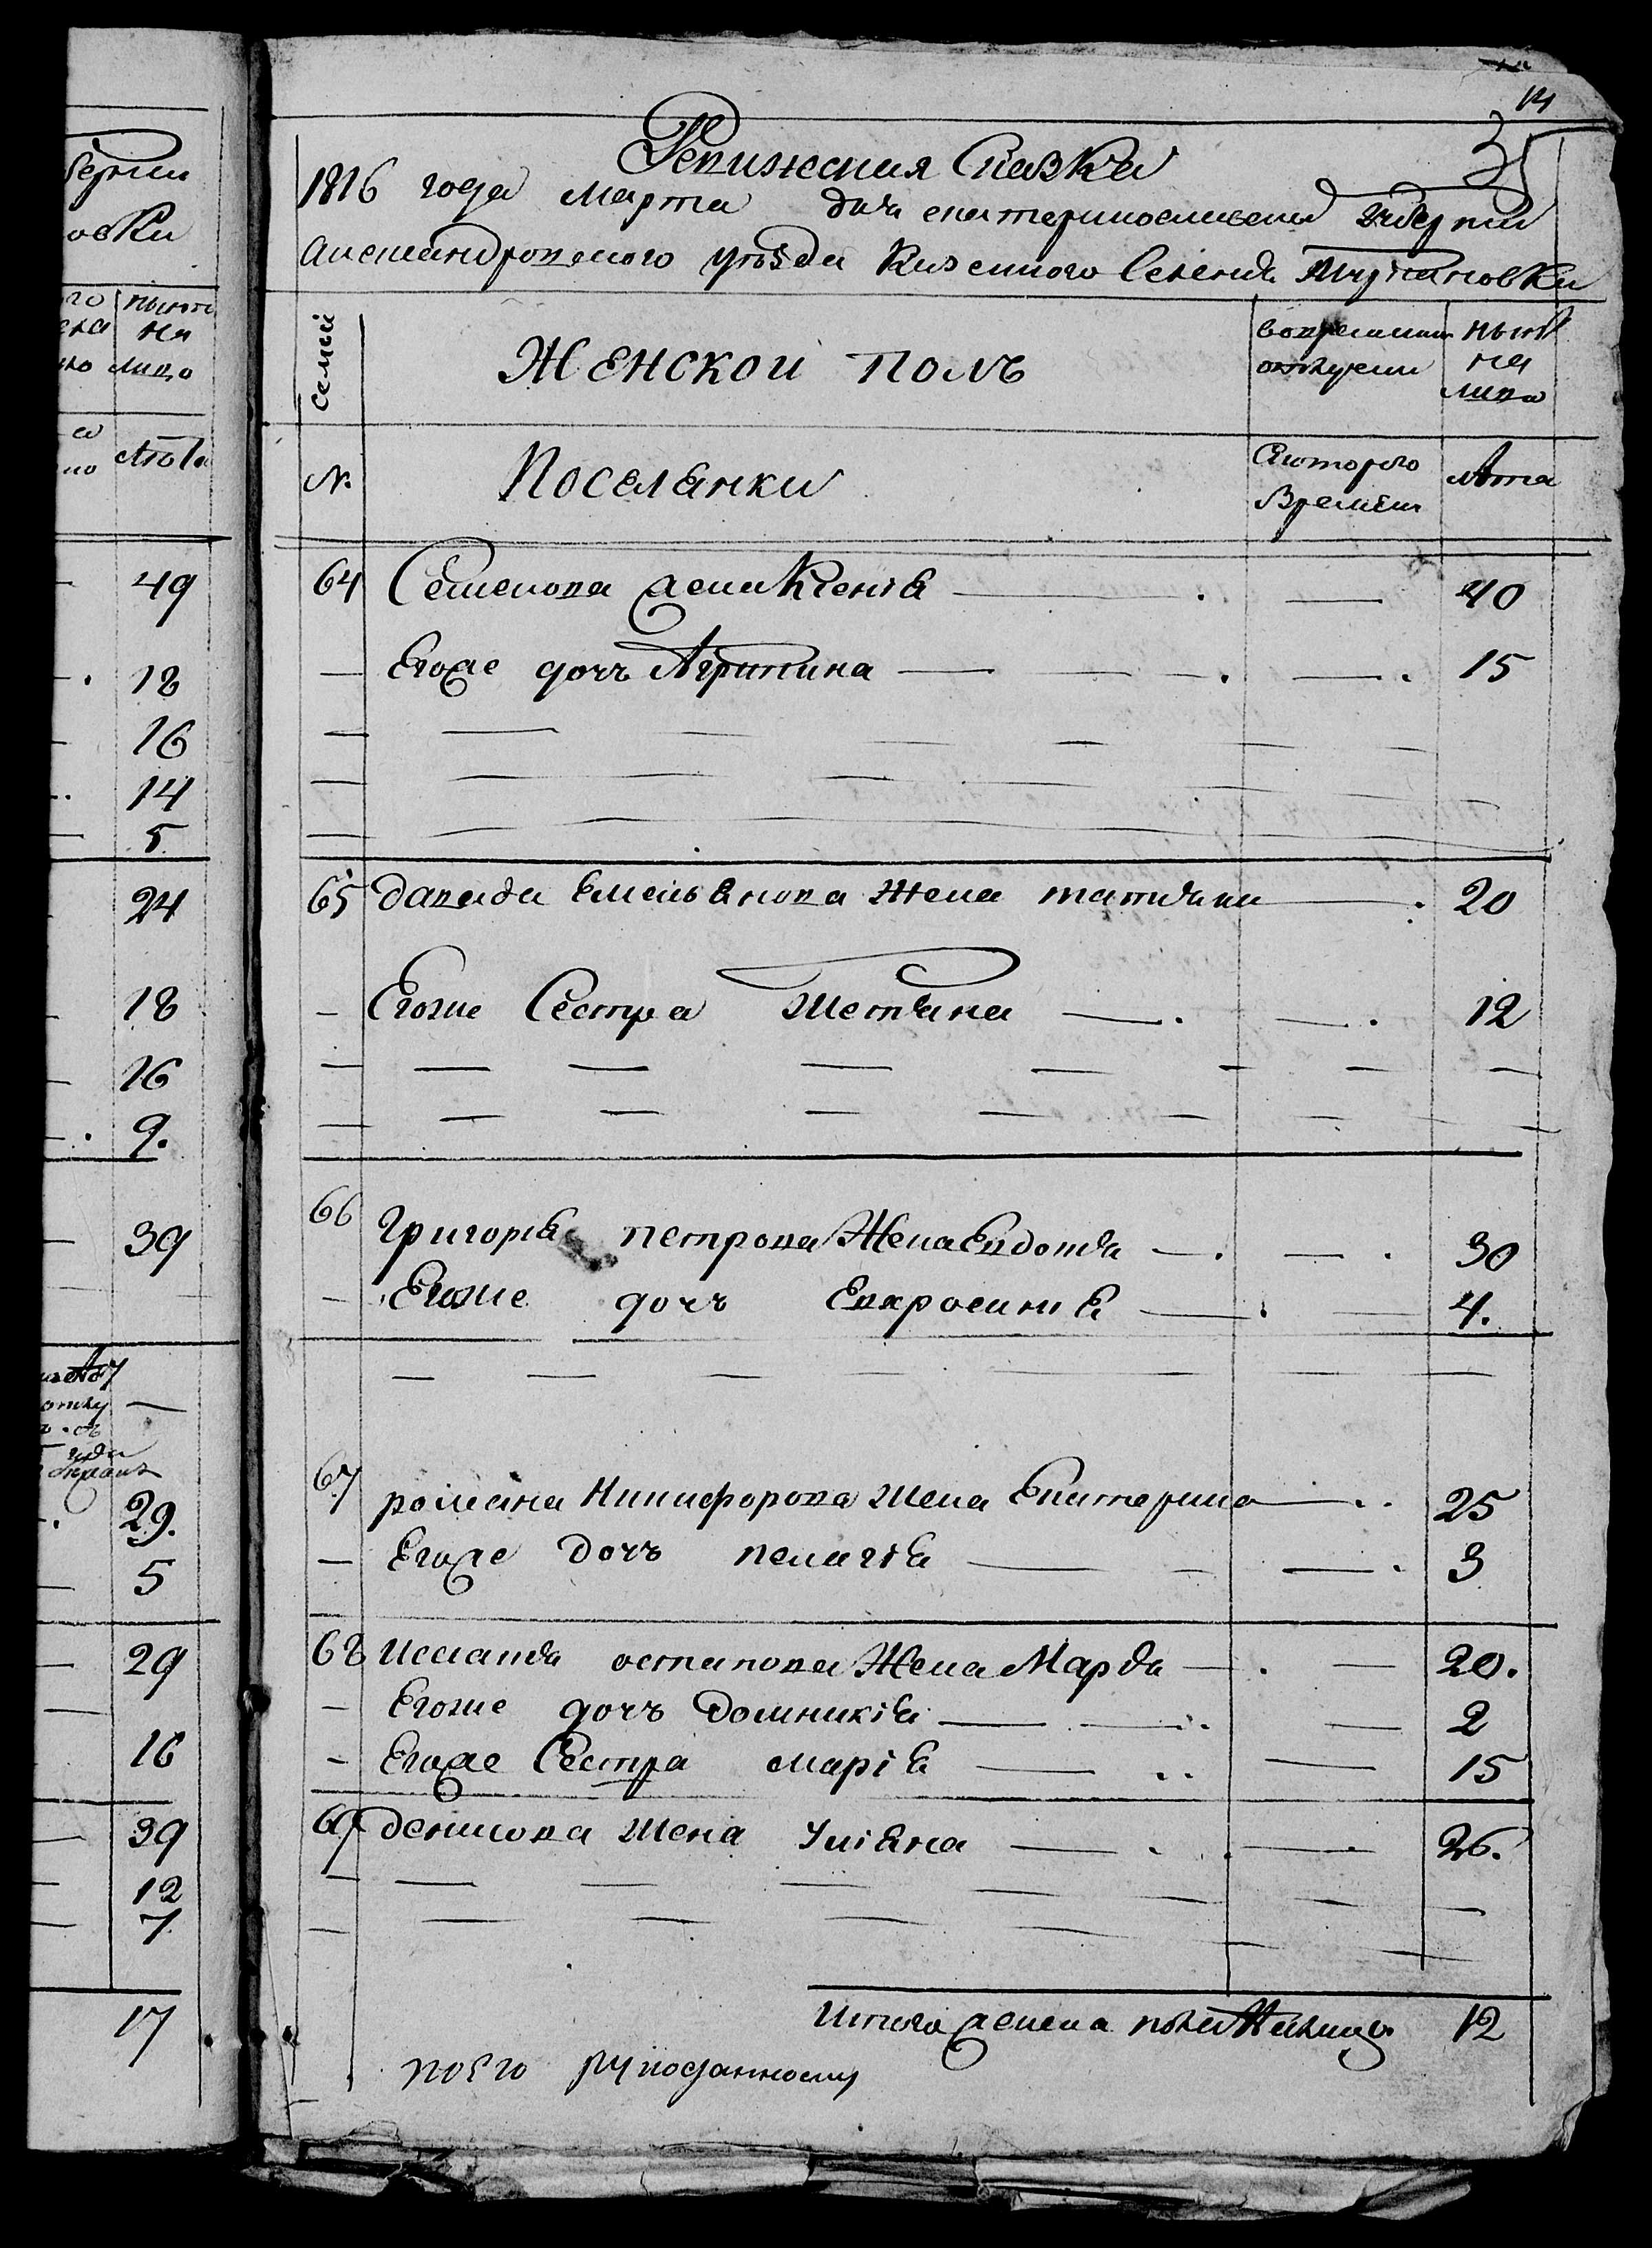 14
35
Ревижская Сказка
1816 года Марта дня екатеринославской Губернии
Александровского уѣзда Казенного Селения
семей
Женской полъ
во временной отлучки
ныне на лицо
№.
Поселянки
С которого Времени
Лѣта
64 Семенова жена Ксенія — 40
— Егоже дочь Агрипина — 15
65 давида Емельянова Жена татияна — 20
— Егоже Сестра Шетияна — 12
66 Григорія петрова Жена Евдотия — 30
— Егоже дочь Евкросинія — 4.
67 романа Никифорова Жена Екатерина — 25
— Егоже дочь пелагія — 3
68 остапова Жена Марфа — 20.
— Егоже дочь Домникія — 2
— Егоже Сестра марія — 15
69 денисова Жена Уліяна — 26.
Итого женска пола На лицо 12
поего руподанному
бернии
овки
го
ныне
на
но лицо
но Лѣта
49
18
16
14
5
24
18
16
9.
39
29.
5
29
16
39
12
7
17